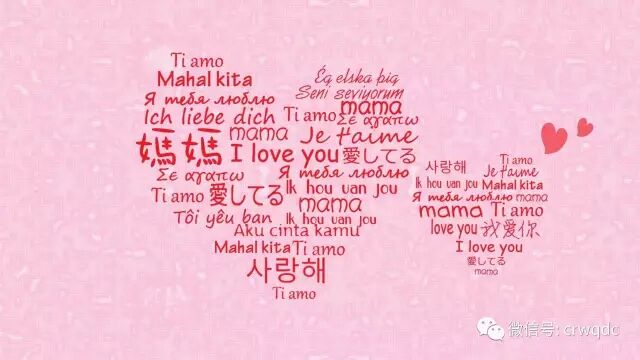 Ti amo
Mahal kita
Я тебя люблю
Ich liebe dich
媽媽
mama
I love you
愛してる
Σε αγαπω
Ti amo
愛してる
Tôi yêu bạn
Aku cinta kamu
Mahal kita
Ti amo
사랑해
Ti amo
Ég elska þig
Seni seviyorum
mama
Ti amo
Σε αγαπω
Je t'aime
Я тебя люблю
Ik hou van jou
mama
Ik hou van jou
사랑해
Ti amo
Je t'aime
Ik hou van jou
Mahal kita
Я тебя люблю
mama
mama
Ti amo
love you
我爱你
I love you
愛してる
mama
微信号: crwqdc